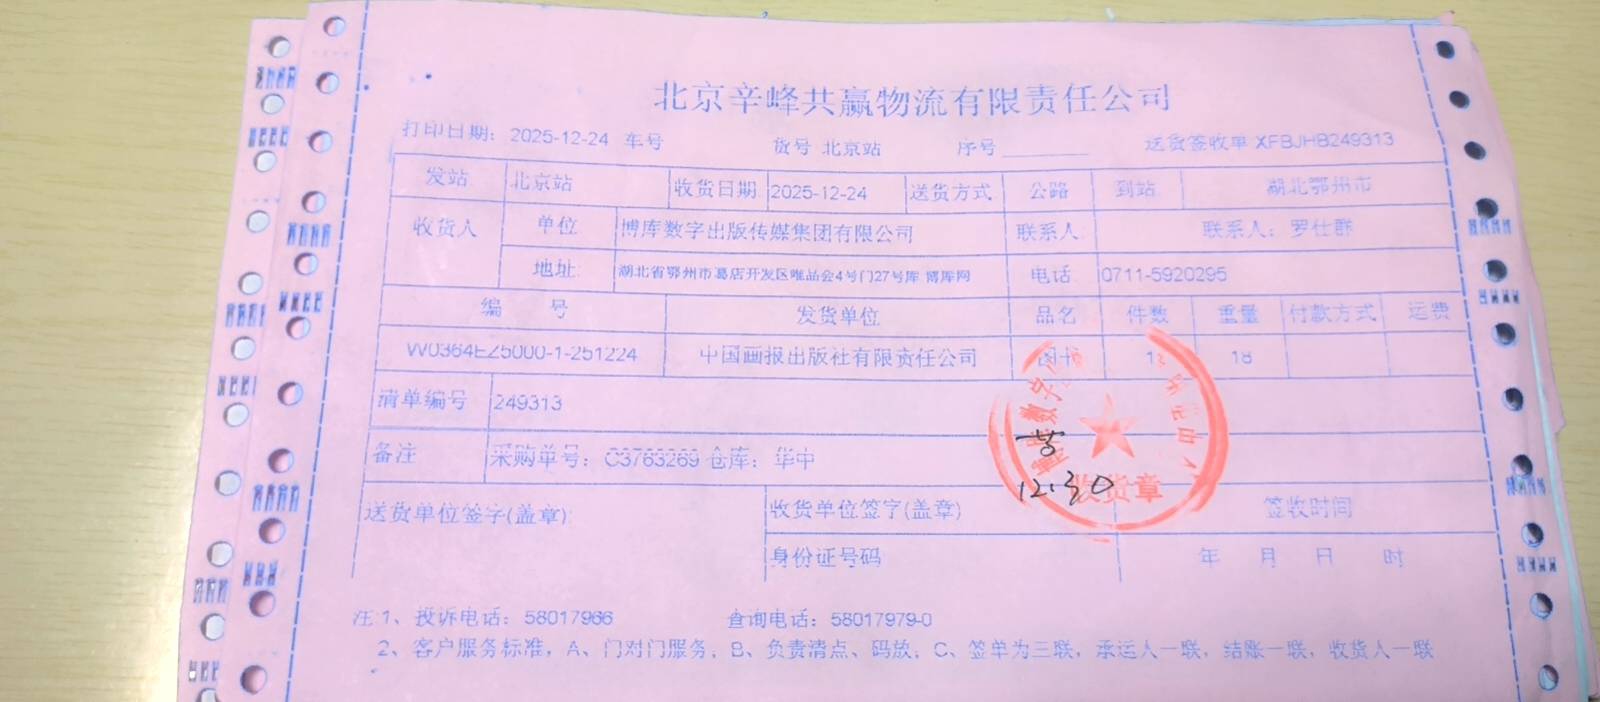 北京辛峰共赢物流有限责任公司
打印日期：2025-12-24 车号 货号 北京站 序号 送货签收单 XFBJHB249313
发站 北京站 收货日期 2025-12-24 送货方式 公路 到站 湖北鄂州市
收货人 单位 博库数字出版传媒集团有限公司 联系人 联系人：罗仕群
地址 湖北省鄂州市葛店开发区唯品会4号门27号库 博库网 电话 0711-5920295
编 号 发货单位 品名 件数 重量 付款方式 运费
W0364EZ5000-1-251224 中国画报出版社有限责任公司 图书 18
清单编号 249313
备注 采购单号：C3763269 仓库：华中
12.30 收货章
送货单位签字(盖章) 收货单位签字(盖章) 签收时间
身份证号码 年 月 日 时
注:1、投诉电话：58017966 查询电话：58017979-0
2、客户服务标准，A、门对门服务；B、负责清点、码放；C、签单为三联，承运人一联，结账一联，收货人一联